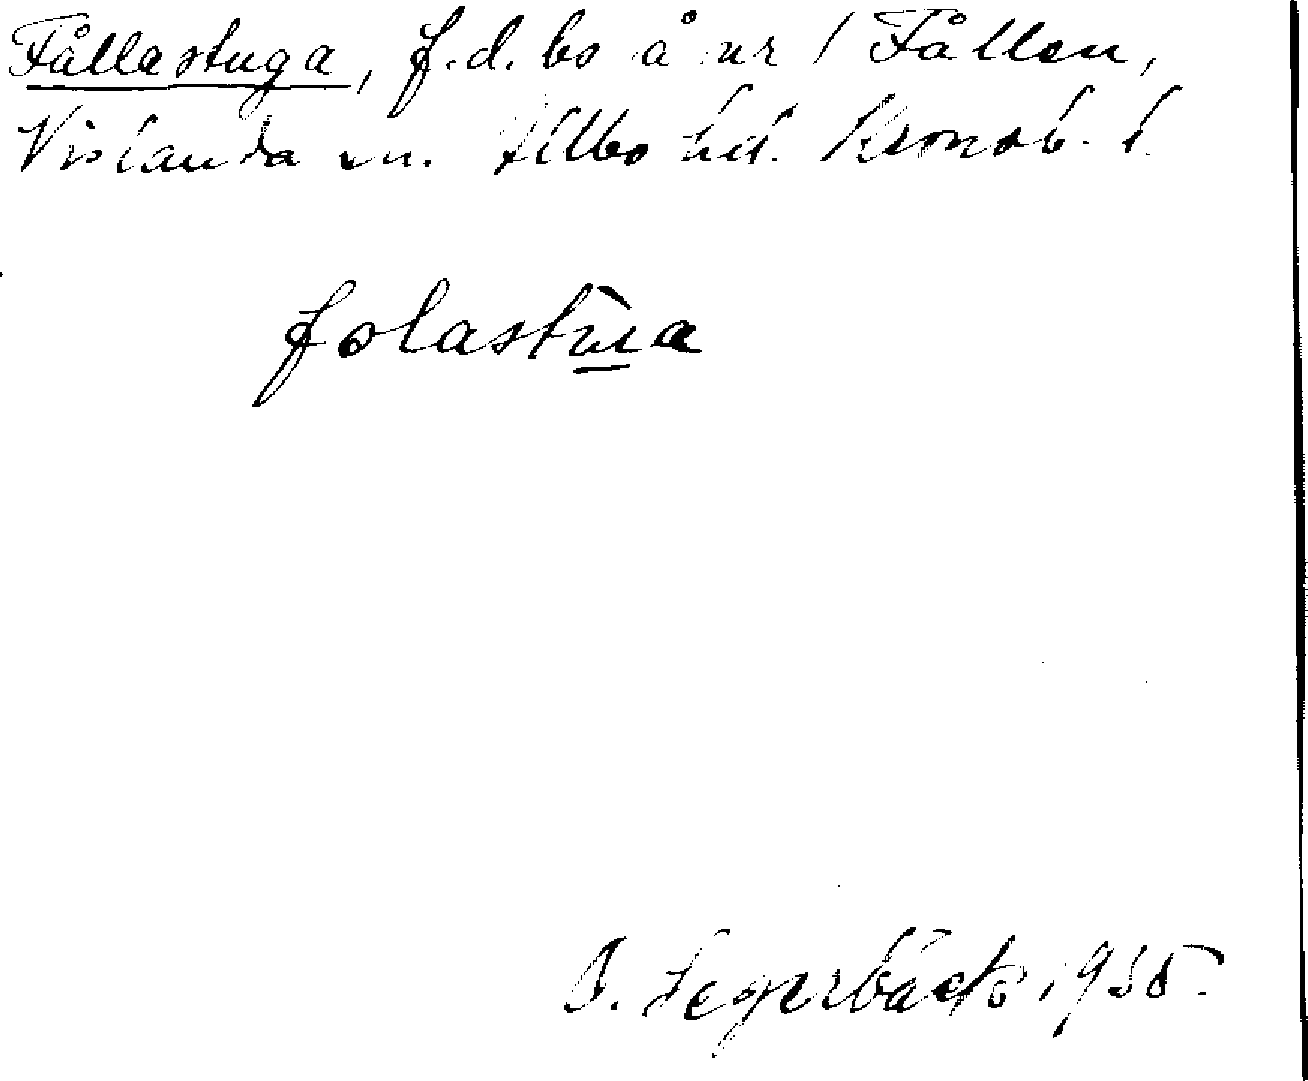 Fållastuga, f.d. bs å nr 1 Fållen,
Vislanda sn. Allbo hd. Kronob. l.
folastùa
B. Segerbäck, 1935.